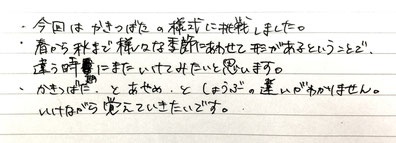 ・今回はかきつばたの様式に挑戦しました。
・春から秋まで様々な季節にあわせて形があるということで、
違う時期にまたいけてみたいと思います。
・かきつばた、とあやめ、としょうぶの違いがわかりません。
いけながら覚えていきたいです。